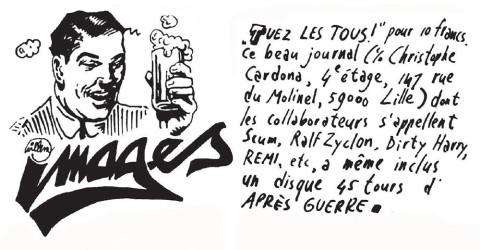 Willem
images
"TUEZ LES TOUS!" pour 10 francs.
Ce beau journal (% Christophe
Cardona, 4e étage, 147 rue
du Molinel, 59000 Lille) dont
les collaborateurs s'appellent
Scum, Ralf Zyclon, Dirty Harry,
REMI, etc, a même inclus
un disque 45 tours d'
APRÈS GUERRE.